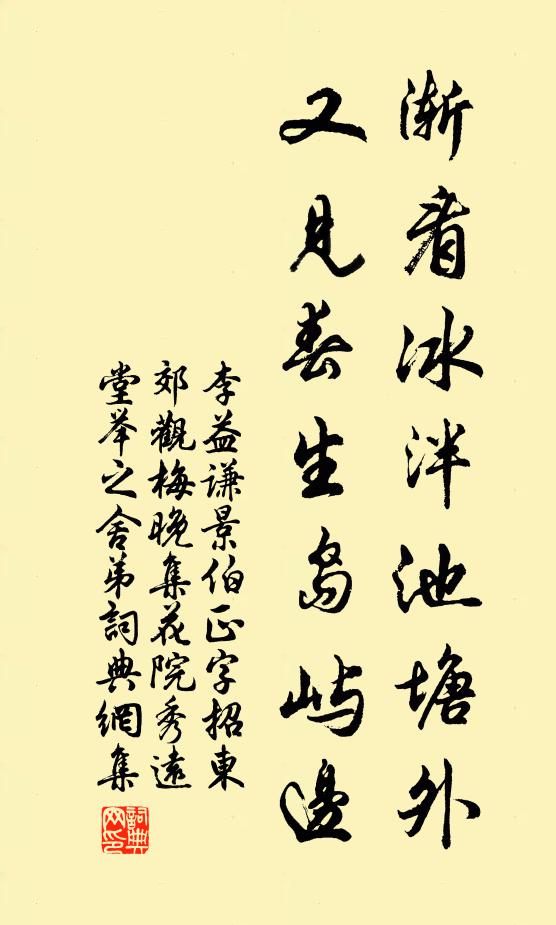 渐看冰泮池塘外
又见春生岛屿邊
李益谦景伯正字招東
郊觀梅晚集花院秀遠
堂举之舍弟詞典網集
詞典
网印